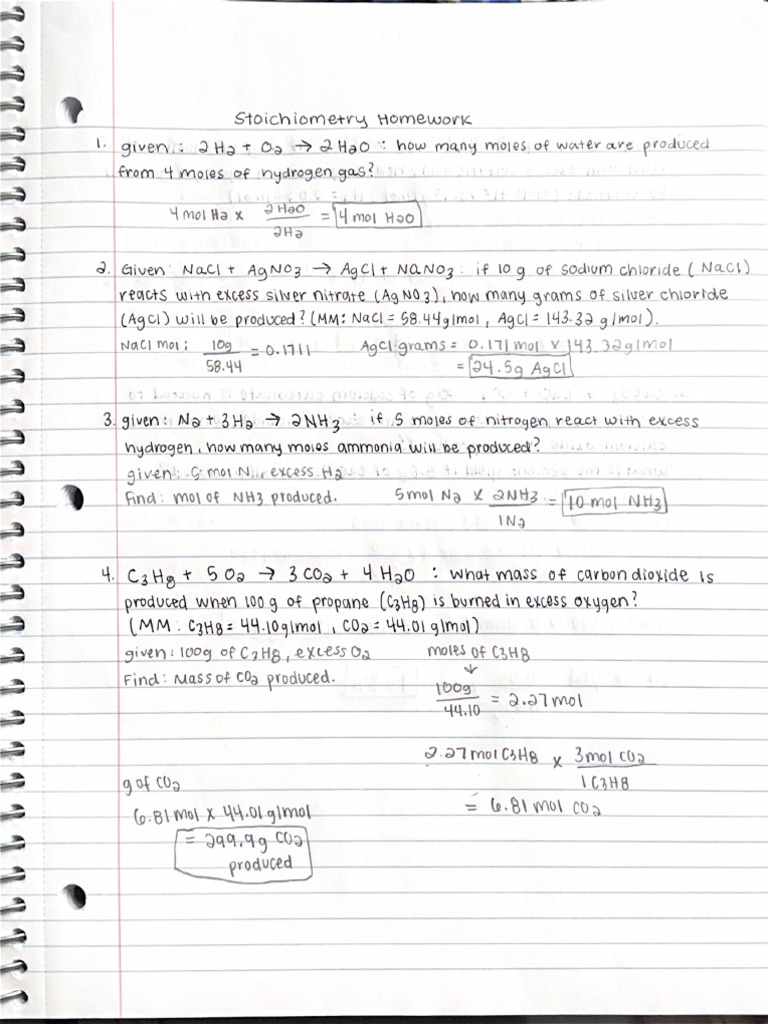 Stoichiometry Homework
1. given: 2H2 + O2 → 2H2O : how many moles of water are produced
from 4 moles of hydrogen gas?
4 mol H2 x 2H2O / 2H2 = 4 mol H2O
2. Given: NaCl + AgNO3 → AgCl + NaNO3: if 10 g of sodium chloride (NaCl)
reacts with excess silver nitrate (AgNO3), how many grams of silver chloride
(AgCl) will be produced? (MM: NaCl = 58.44g/mol, AgCl = 143.32 g/mol).
NaCl mol: 10g / 58.44 = 0.1711 AgCl grams = 0.171 mol x 143.32g/mol
= 24.5g AgCl
3. given: N2 + 3H2 → 2NH3 : if 5 moles of nitrogen react with excess
hydrogen, how many moles ammonia will be produced?
given: 5 mol N2, excess H2
Find: mol of NH3 produced. 5 mol N2 x 2NH3 / 1N2 = 10 mol NH3
4. C3H8 + 5O2 → 3CO2 + 4H2O : what mass of carbon dioxide is
produced when 100g of propane (C3H8) is burned in excess oxygen?
(MM: C3H8 = 44.10g/mol, CO2 = 44.01 g/mol)
given: 100g of C3H8, excess O2 moles of C3H8
↓
Find: Mass of CO2 produced. 100g / 44.10 = 2.27 mol
2.27 mol C3H8 x 3 mol CO2 / 1 C3H8
= 6.81 mol CO2
g of CO2
6.81 mol x 44.01 g/mol
= 299.9g CO2
produced